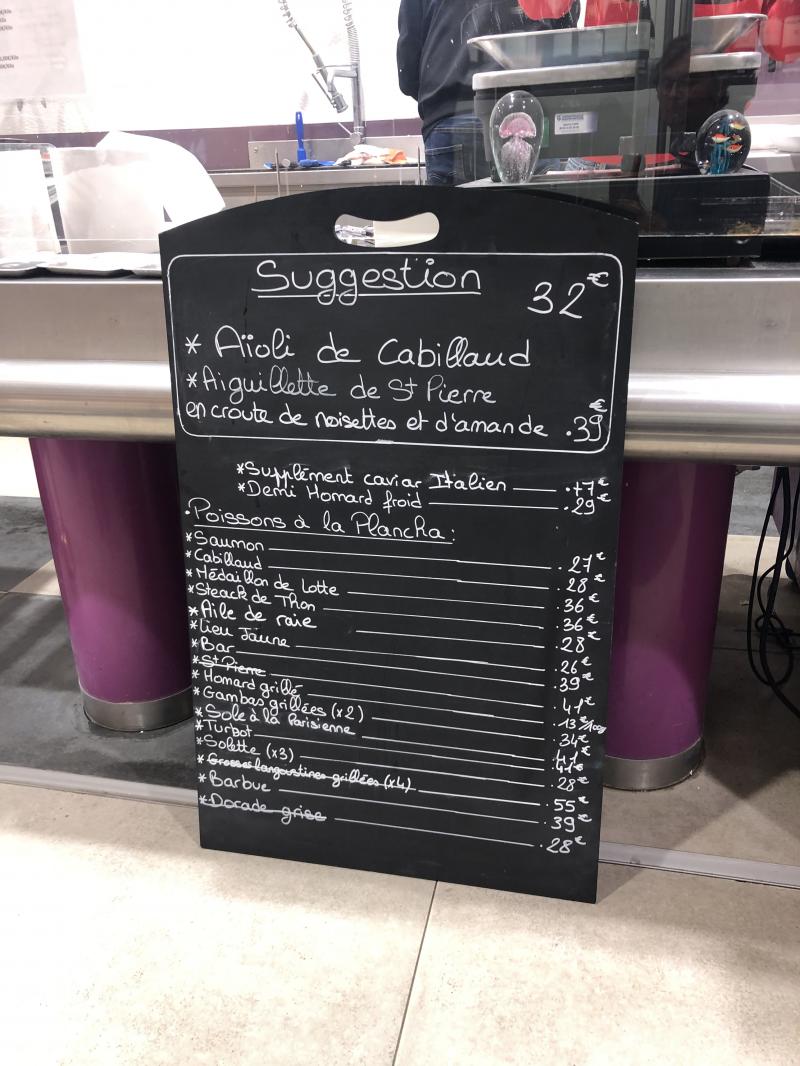 Suggestion 32€
* Aïoli de Cabillaud
* Aiguillette de St Pierre
en croute de noisettes et d'amande .39€
*Supplément caviar Italien .+7€
*Demi Homard froid .29€
.Poissons à la Plancha :
*Saumon .27€
*Cabillaud .28€
*Médaillon de Lotte .36€
*Steack de Thon .36€
*Aile de raie .28€
*Lieu Jaune .26€
*Bar .39€
*St Pierre .41€
*Homard grillé .13€/100g
*Gambas grillées (x2) .34€
*Sole à la Parisienne .41€
*Turbot .41€
*Solette (x3) .28€
*Grosses langoustines grillées (x4) .55€
*Barbue .39€
*Dorade grise .28€